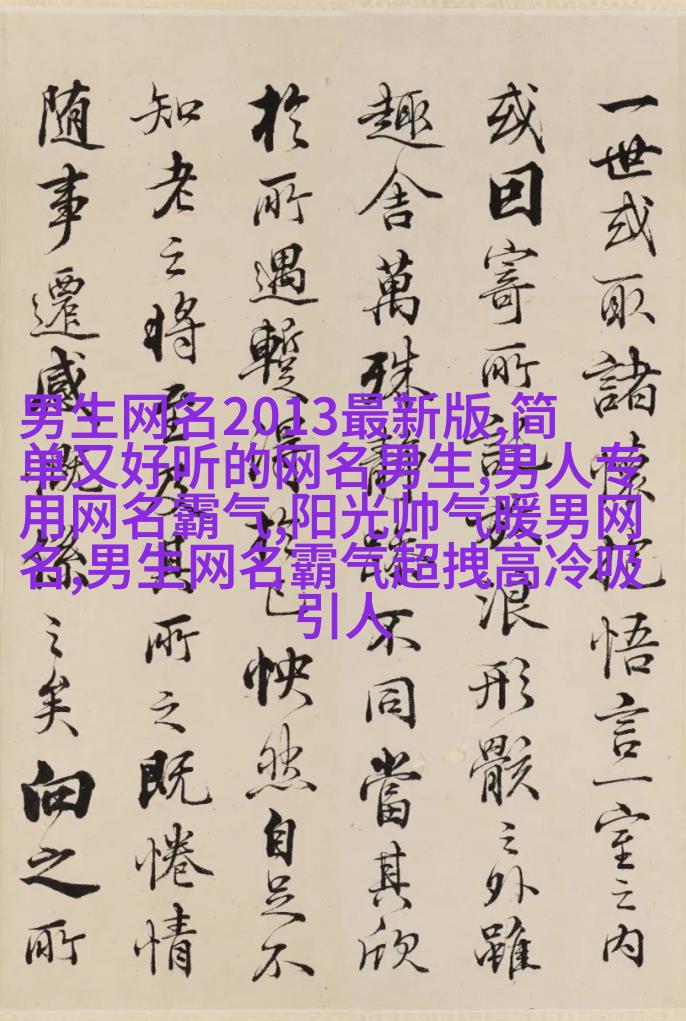 男生网名2013最新版,简
单又好听的网名男生,男人专
用网名霸气,阳光帅气暖男网
名,男生网名霸气超拽高冷吸
引人
一世或取諸懷抱悟言一室之内
或因寄所託放浪形骸之外雖
趣舍萬殊静躁不同當其欣
於所遇蹔得於己怏然自足不
知老之將至及其所之既惓情
随事遷感慨係之矣向之所